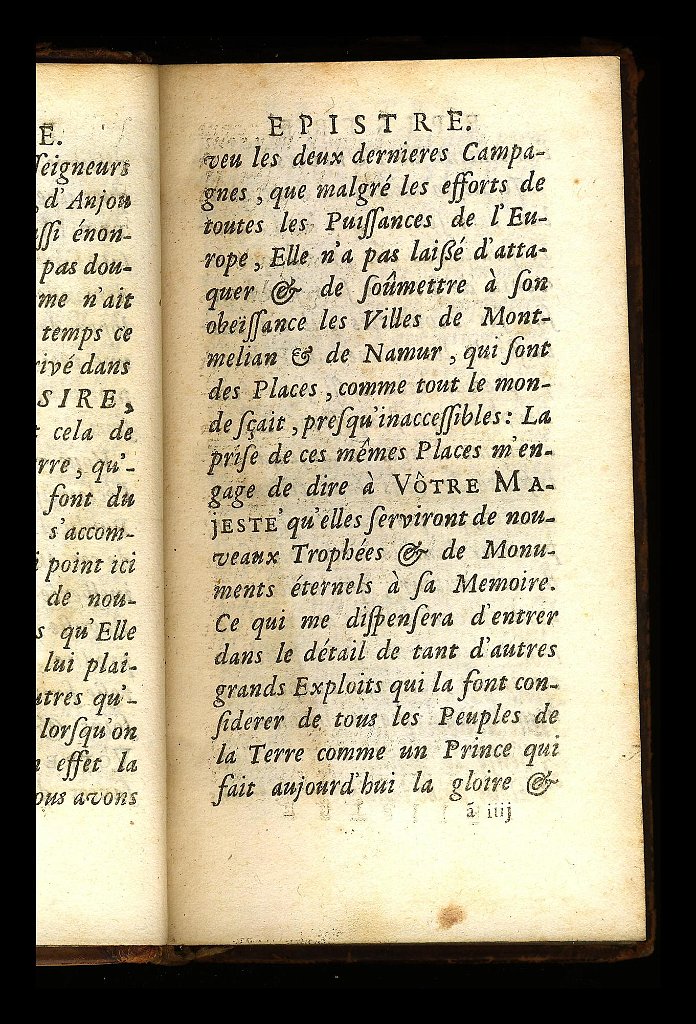 E.
ſeigneurs
d'Anjou
uſſi énon-
pas dou-
me n'ait
temps ce
rivé dans
SIRE,
cela de
rre, qu'-
font du
s'accom-
point ici
de nou-
s qu'Elle
lui plai-
utres qu'-
lorſqu'on
effet la
ous avons
EPISTRE.
veu les deux dernieres Campa-
gnes, que malgré les efforts de
toutes les Puiſſances de l'Eu-
rope, Elle n'a pas laißé d'atta-
quer & de ſoûmettre à ſon
obeïſſance les Villes de Mont-
melian & de Namur, qui ſont
des Places, comme tout le mon-
de ſçait, preſqu'inacceſſibles: La
priſe de ces mêmes Places m'en-
gage de dire à VÔTRE MA-
JESTE' qu'elles ſerviront de nou-
veaux Trophées & de Monu-
ments éternels à ſa Memoire.
Ce qui me diſpenſera d'entrer
dans le détail de tant d'autres
grands Exploits qui la font con-
ſiderer de tous les Peuples de
la Terre comme un Prince qui
fait aujourd'hui la gloire &
ã iiij